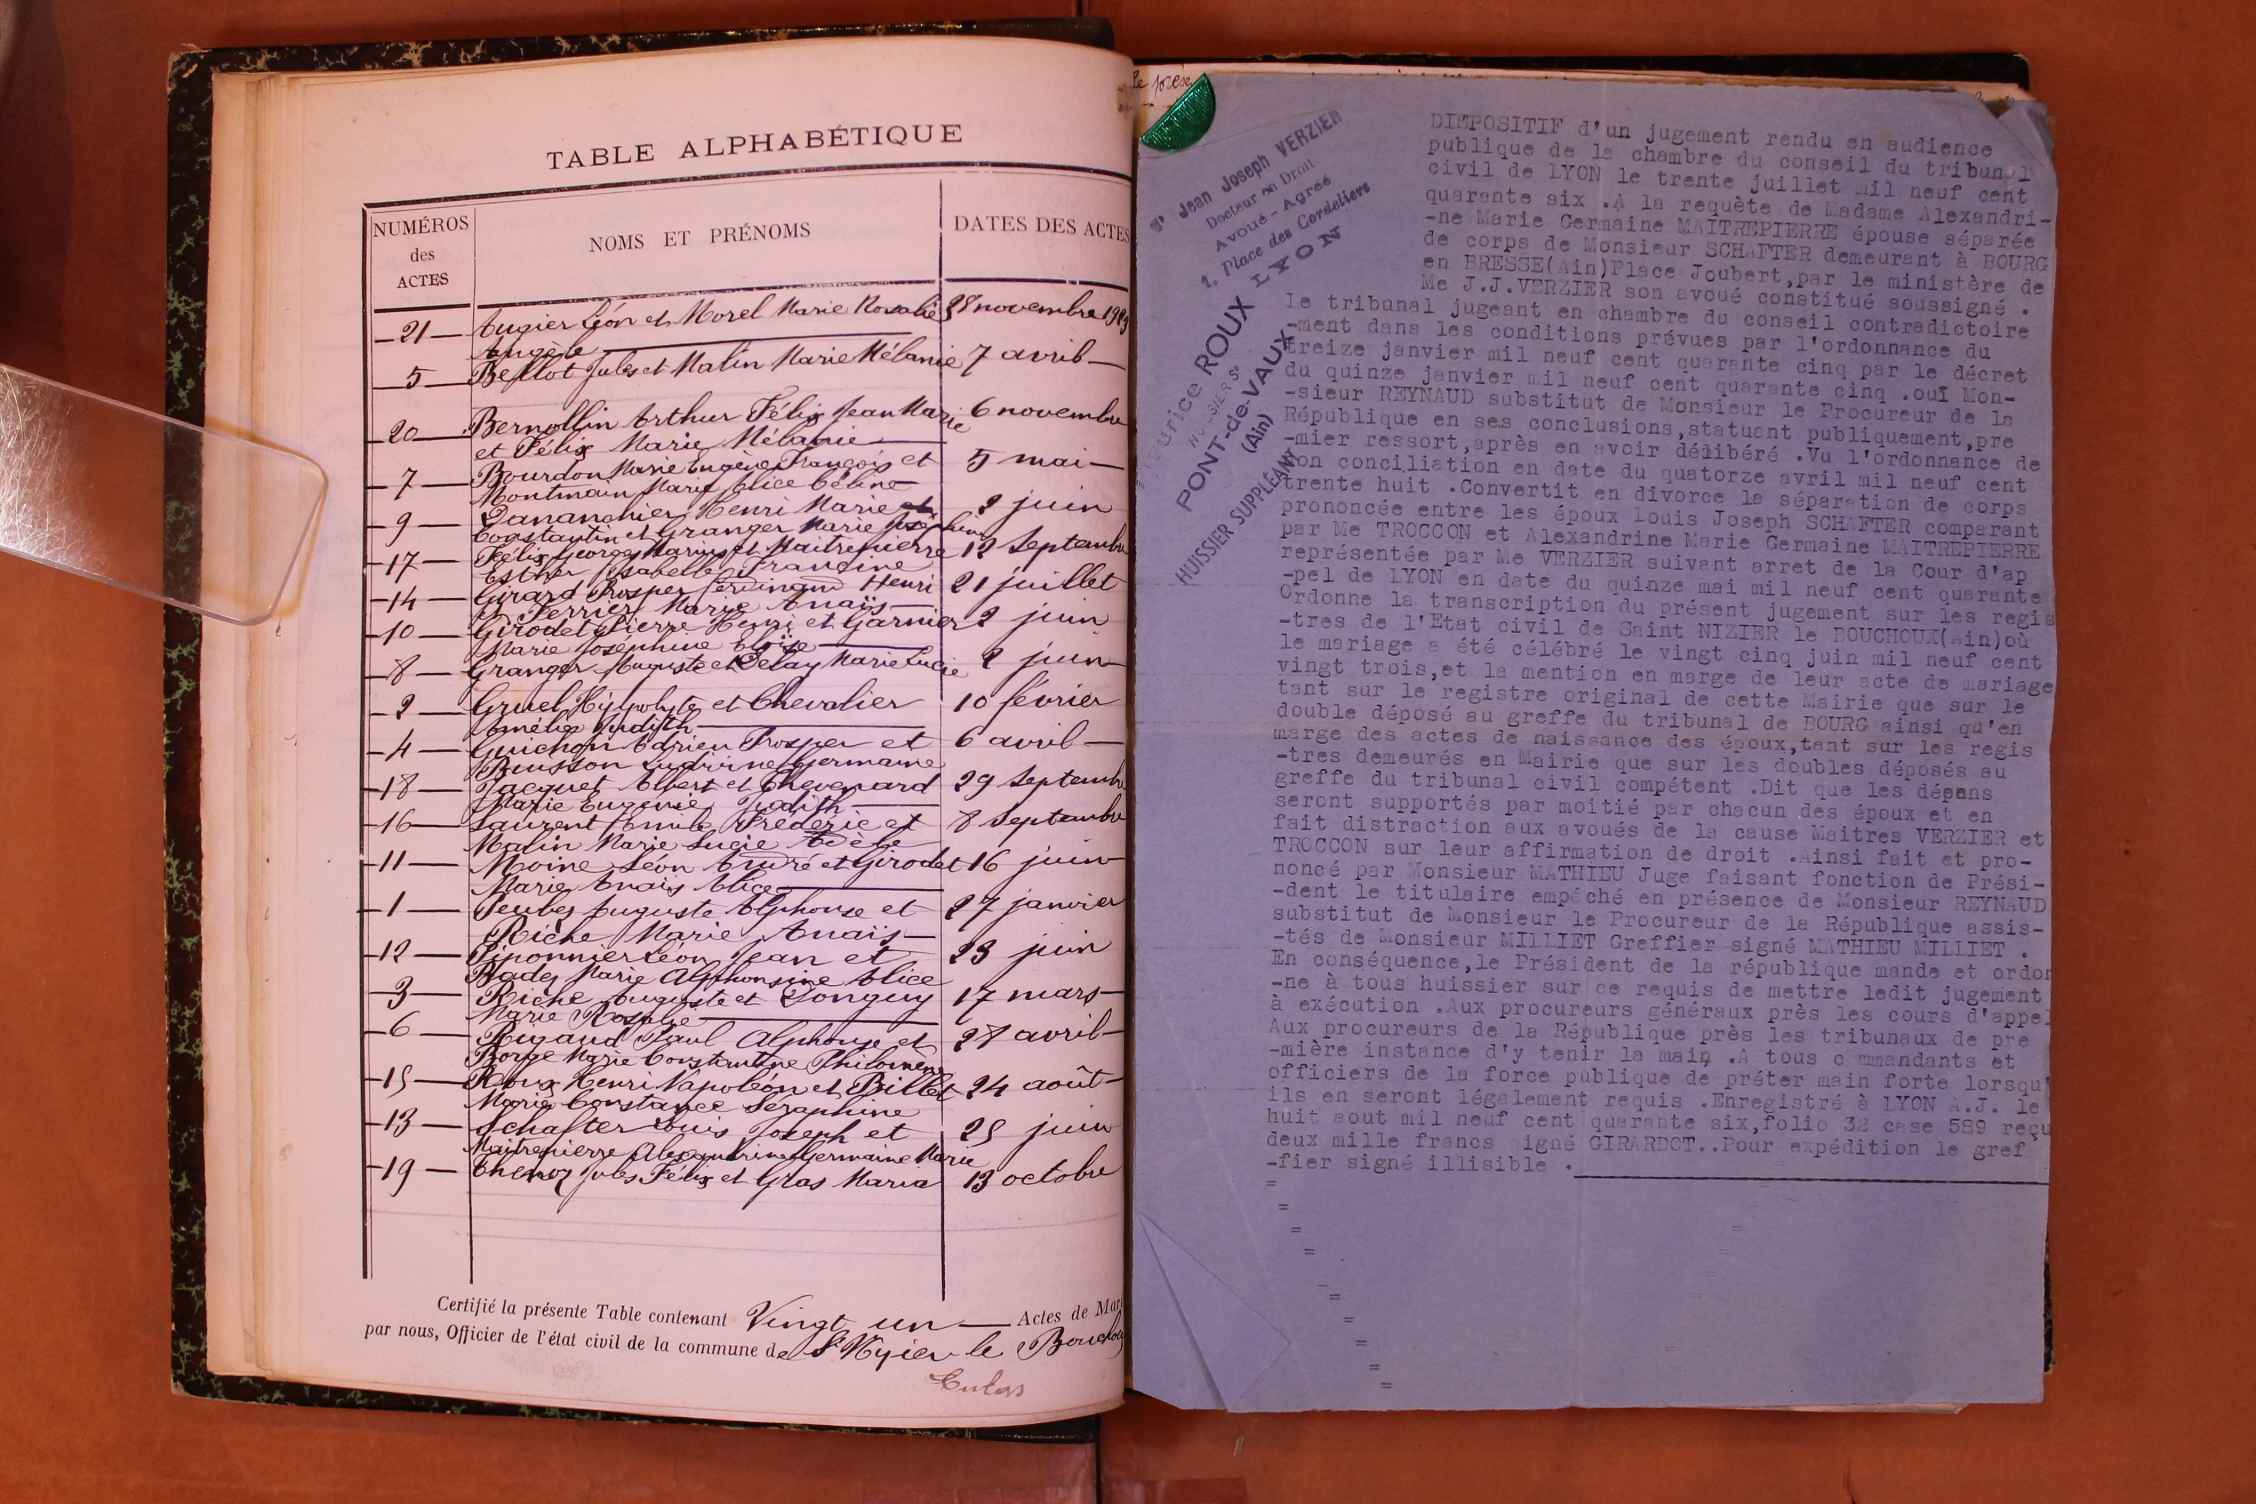 TABLE ALPHABÉTIQUE
NUMÉROS des ACTES
NOMS ET PRÉNOMS
DATES DES ACTES
21 Augier Léon et Morel Marie Rosalie 28 novembre 1923
Angèle
5 Bellot Jules et Malin Marie Mélanie 7 avril
20 Bernollin Arthur Félix Jean Marie 6 novembre
et Félix Marie Mélanie
7 Bourdon Marie Eugène François et 5 mai
Montmain Marie Alice Céline
9 Dananchier Henri Marie 2 juin
Constantin et Granger Marie Joséphine
17 Félix Georges Marius et Maitrepierre 12 Septembre
Esther Isabelle Francine
14 Girard Prosper Ferdinand Henri 21 juillet
Perrier Marie Anaïs
10 Girodet Pierre Henri et Garnier 2 juin
Marie Joséphine Eloïse
8 Granger Auguste et Delay Marie Lucie 2 juin
2 Gruel Hypolyte et Chevalier 10 février
Amélie Judith
4 Guichon Adrien Prosper et 6 avril
Buisson Ludivine Germaine
18 Jacquet Albert et Thevenard 29 Septembre
Marie Eugénie Judith
16 Laurent Emile Frédéric et 8 Septembre
Malin Marie Lucie Adèle
11 Moine Léon André et Girodet 16 juin
Marie Anaïs Alice
1 Peubez Auguste Alphonse et 27 janvier
Riche Marie Anaïs
12 Piponnier Léon Jean et 23 juin
Badez Marie Alphonsine Alice
3 Riche Auguste et Donguy 17 mars
Marie Rosalie
6 Rigaud Paul Alphonse et 28 avril
Borge Marie Constantine Philomène
15 Roux Henri Napoléon et Billet 24 août
Marie Constance Séraphine
13 Schafter Louis Joseph et 25 juin
Maitrepierre Alexandrine Germaine Marie
19 Thenoz Jules Félix et Gras Maria 13 octobre
Certifié la présente Table contenant Vingt un Actes de Mar
par nous, Officier de l'état civil de la commune de St Nizier le Bouchoux
Me Jean Joseph VERZIER
Docteur en Droit
Avoué - Agréé
1, Place des Cordeliers
LYON
Maurice ROUX
HUISSIERS
PONT-de-VAUX
(Ain)
HUISSIER SUPPLÉANT
DISPOSITIF d'un jugement rendu en audience
publique de la chambre du conseil du tribunal
civil de LYON le trente juillet mil neuf cent
quarante six .A la requète de Madame Alexandri-
-ne Marie Germaine MAITREPIERRE épouse séparée
de corps de Monsieur SCHAFTER demeurant à BOURG
en BRESSE(Ain)Place Joubert,par le ministère de
Me J.J.VERZIER son avoué constitué soussigné .
le tribunal jugeant en chambre du conseil contradictoire
-ment dans les conditions prévues par l'ordonnance du
treize janvier mil neuf cent quarante cinq par le décret
du quinze janvier mil neuf cent quarante cinq .ouï Mon-
-sieur REYNAUD substitut de Monsieur le Procureur de la
République en ses conclusions,statuant publiquement,pre
-mier ressort,après en avoir délibéré .Vu l'ordonnance de
non conciliation en date du quatorze avril mil neuf cent
trente huit .Convertit en divorce la séparation de corps
prononcée entre les époux Louis Joseph SCHAFTER comparant
par Me TROCCON et Alexandrine Marie Germaine MAITREPIERRE
représentée par Me VERZIER suivant arret de la Cour d'ap
-pel de LYON en date du quinze mai mil neuf cent quarante
Ordonne la transcription du présent jugement sur les regis
-tres de l'Etat civil de Saint NIZIER le BOUCHOUX(Ain)où
le mariage a été célébré le vingt cinq juin mil neuf cent
vingt trois,et la mention en marge de leur acte de mariage
tant sur le registre original de cette Mairie que sur le
double déposé au greffe du tribunal de BOURG ainsi qu'en
marge des actes de naissance des époux,tant sur les regis
-tres demeurés en Mairie que sur les doubles déposés au
greffe du tribunal civil compétent .Dit que les dépens
seront supportés par moitié par chacun des époux et en
fait distraction aux avoués de la cause Maitres VERZIER et
TROCCON sur leur affirmation de droit .Ainsi fait et pro-
noncé par Monsieur MATHIEU Juge faisant fonction de Prési-
-dent le titulaire empéché en présence de Monsieur REYNAUD
substitut de Monsieur le Procureur de la République assis-
-tés de Monsieur MILLIET Greffier signé MATHIEU MILLIET .
En conséquence,le Président de la république mande et ordon
-ne à tous huissier sur ce requis de mettre ledit jugement
à exécution .Aux procureurs généraux près les cours d'appel
Aux procureurs de la République près les tribunaux de pre
-mière instance d'y tenir la main .A tous commandants et
officiers de la force publique de préter main forte lorsqu'
ils en seront légalement requis .Enregistré à LYON A.J. le
huit aout mil neuf cent quarante six,folio 32 case 589 reçu
deux mille francs signé GIRARDOT..Pour expédition le gref
-fier signé illisible .